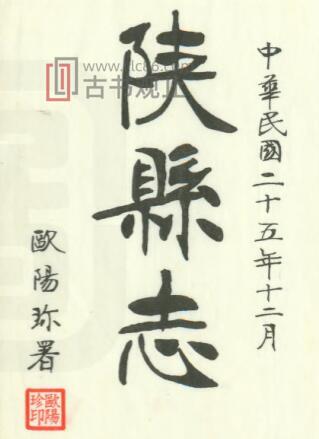 中華民國二十五年十二月
陝縣志
歐陽珍署
歐陽
珍印
古书观止